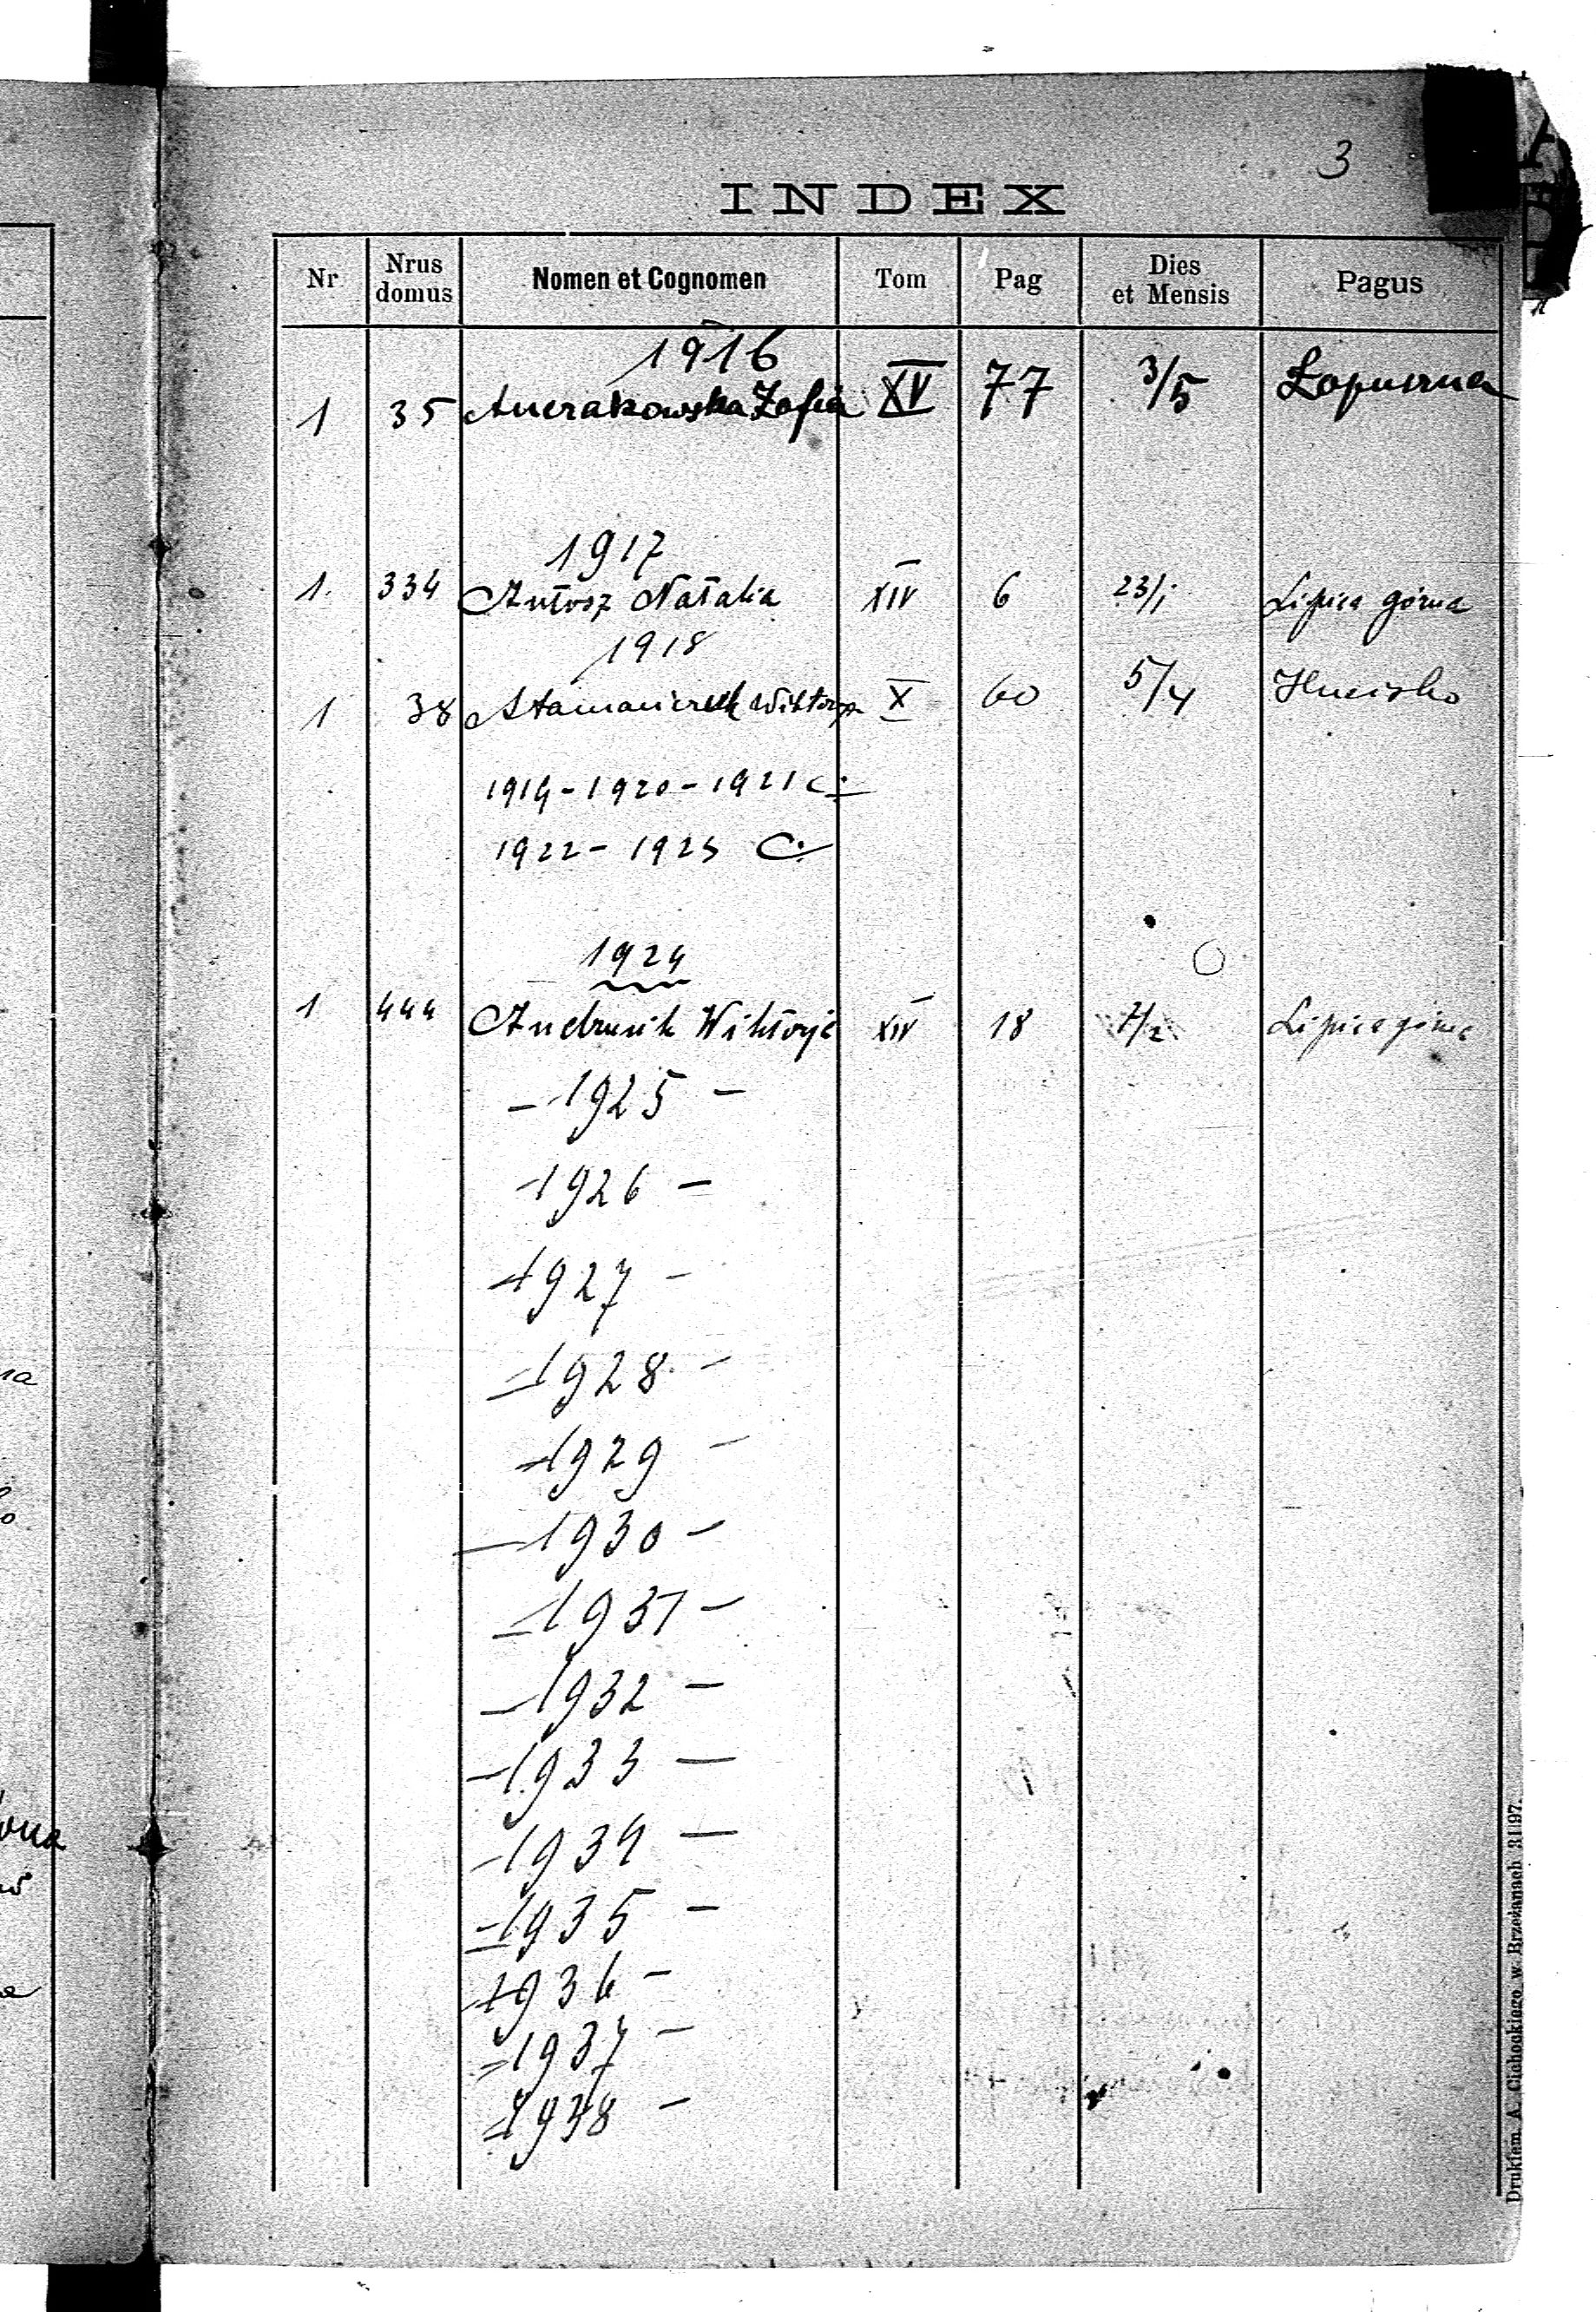 3
INDEX
Nr Nrus domus Nomen et Cognomen Tom Pag Dies et Mensis Pagus
1916
1 35 Zofia XV 77 3/5 Łopuszna
1917
1. 334 Antosz Natalia XIV 6 23/1 Lipica górna
1918
1 38 X 60 5/4 Hucisko
1919 - 1920 - 1921
1922 - 1923
1924
1 444 Andrusik Wiktorja XIV 18 7/2 Lipica górna
- 1925 -
- 1926 -
- 1927 -
- 1928 -
- 1929 -
- 1930 -
- 1931 -
- 1932 -
- 1933 -
- 1934 -
- 1935 -
- 1936 -
- 1937 -
- 1938 -
Drukiem A. Cichockiego w Brzeżanach 31|97.